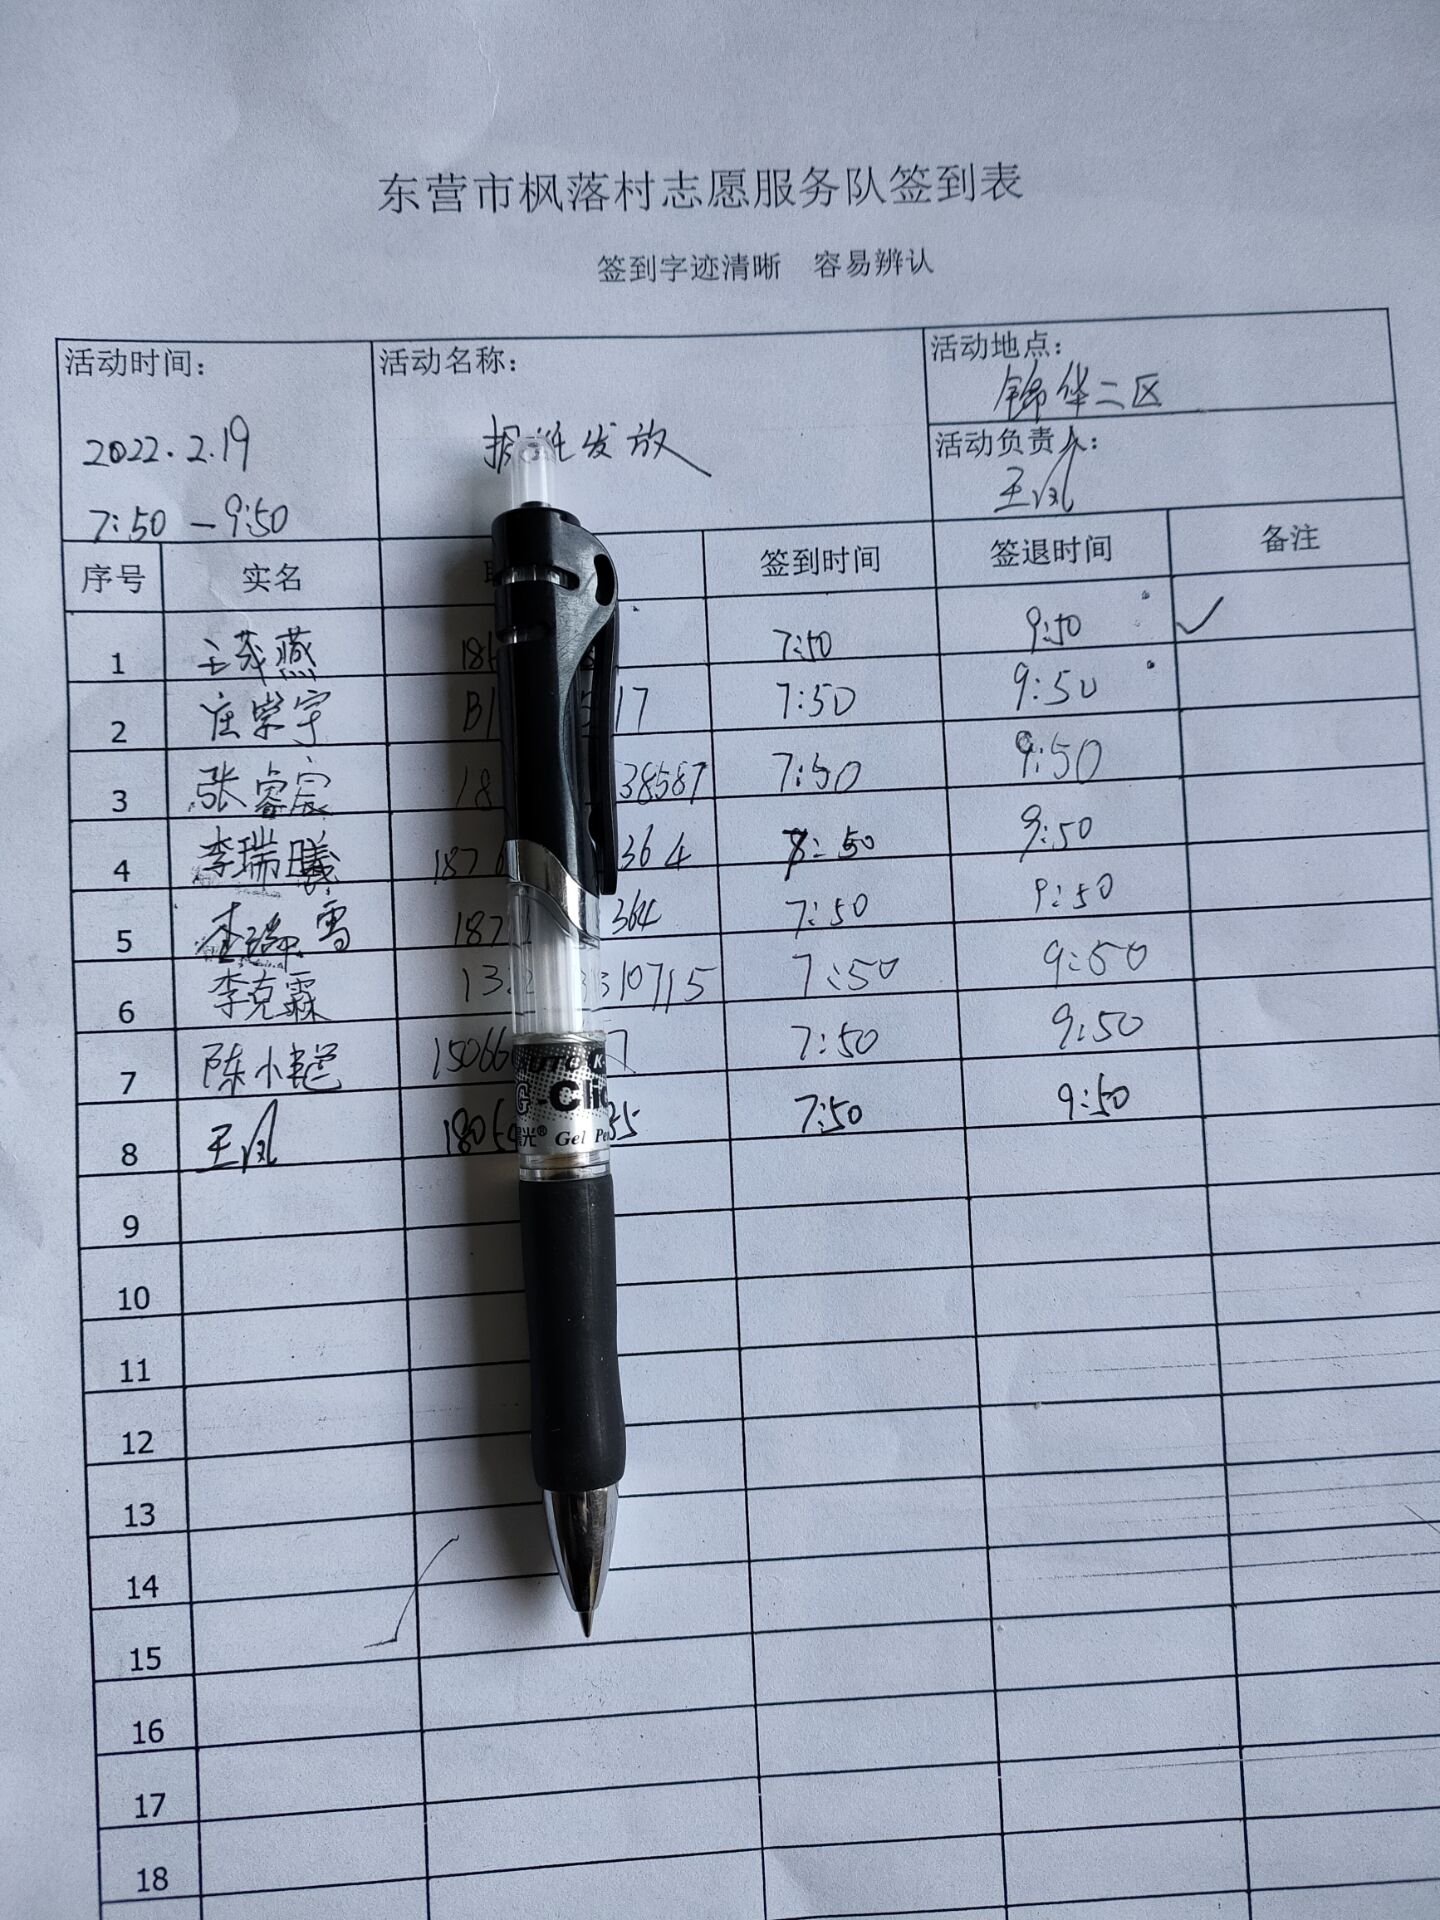 东营市枫落村志愿服务队签到表
签到字迹清晰 容易辨认
活动时间： 活动名称： 活动地点：
锦华二区
2022.2.19 发放 活动负责人：
王凤
7:50-9:50
序号 实名 签到时间 签退时间 备注
1 王茂燕 7:50 9:50 ✓
2 庄崇宇 17 7:50 9:50
3 张睿宸 18 38587 7:50 9:50
4 李瑞曦 1876 364 7:50 9:50
5 李瑞雪 187 364 7:50 9:50
6 李克霖 13 310715 7:50 9:50
7 陈小艳 15066 7 7:50 9:50
8 王凤 1806 35 7:50 9:50
9
10
11
12
13
14
15
16
17
18
G-Clic
Gel Pe